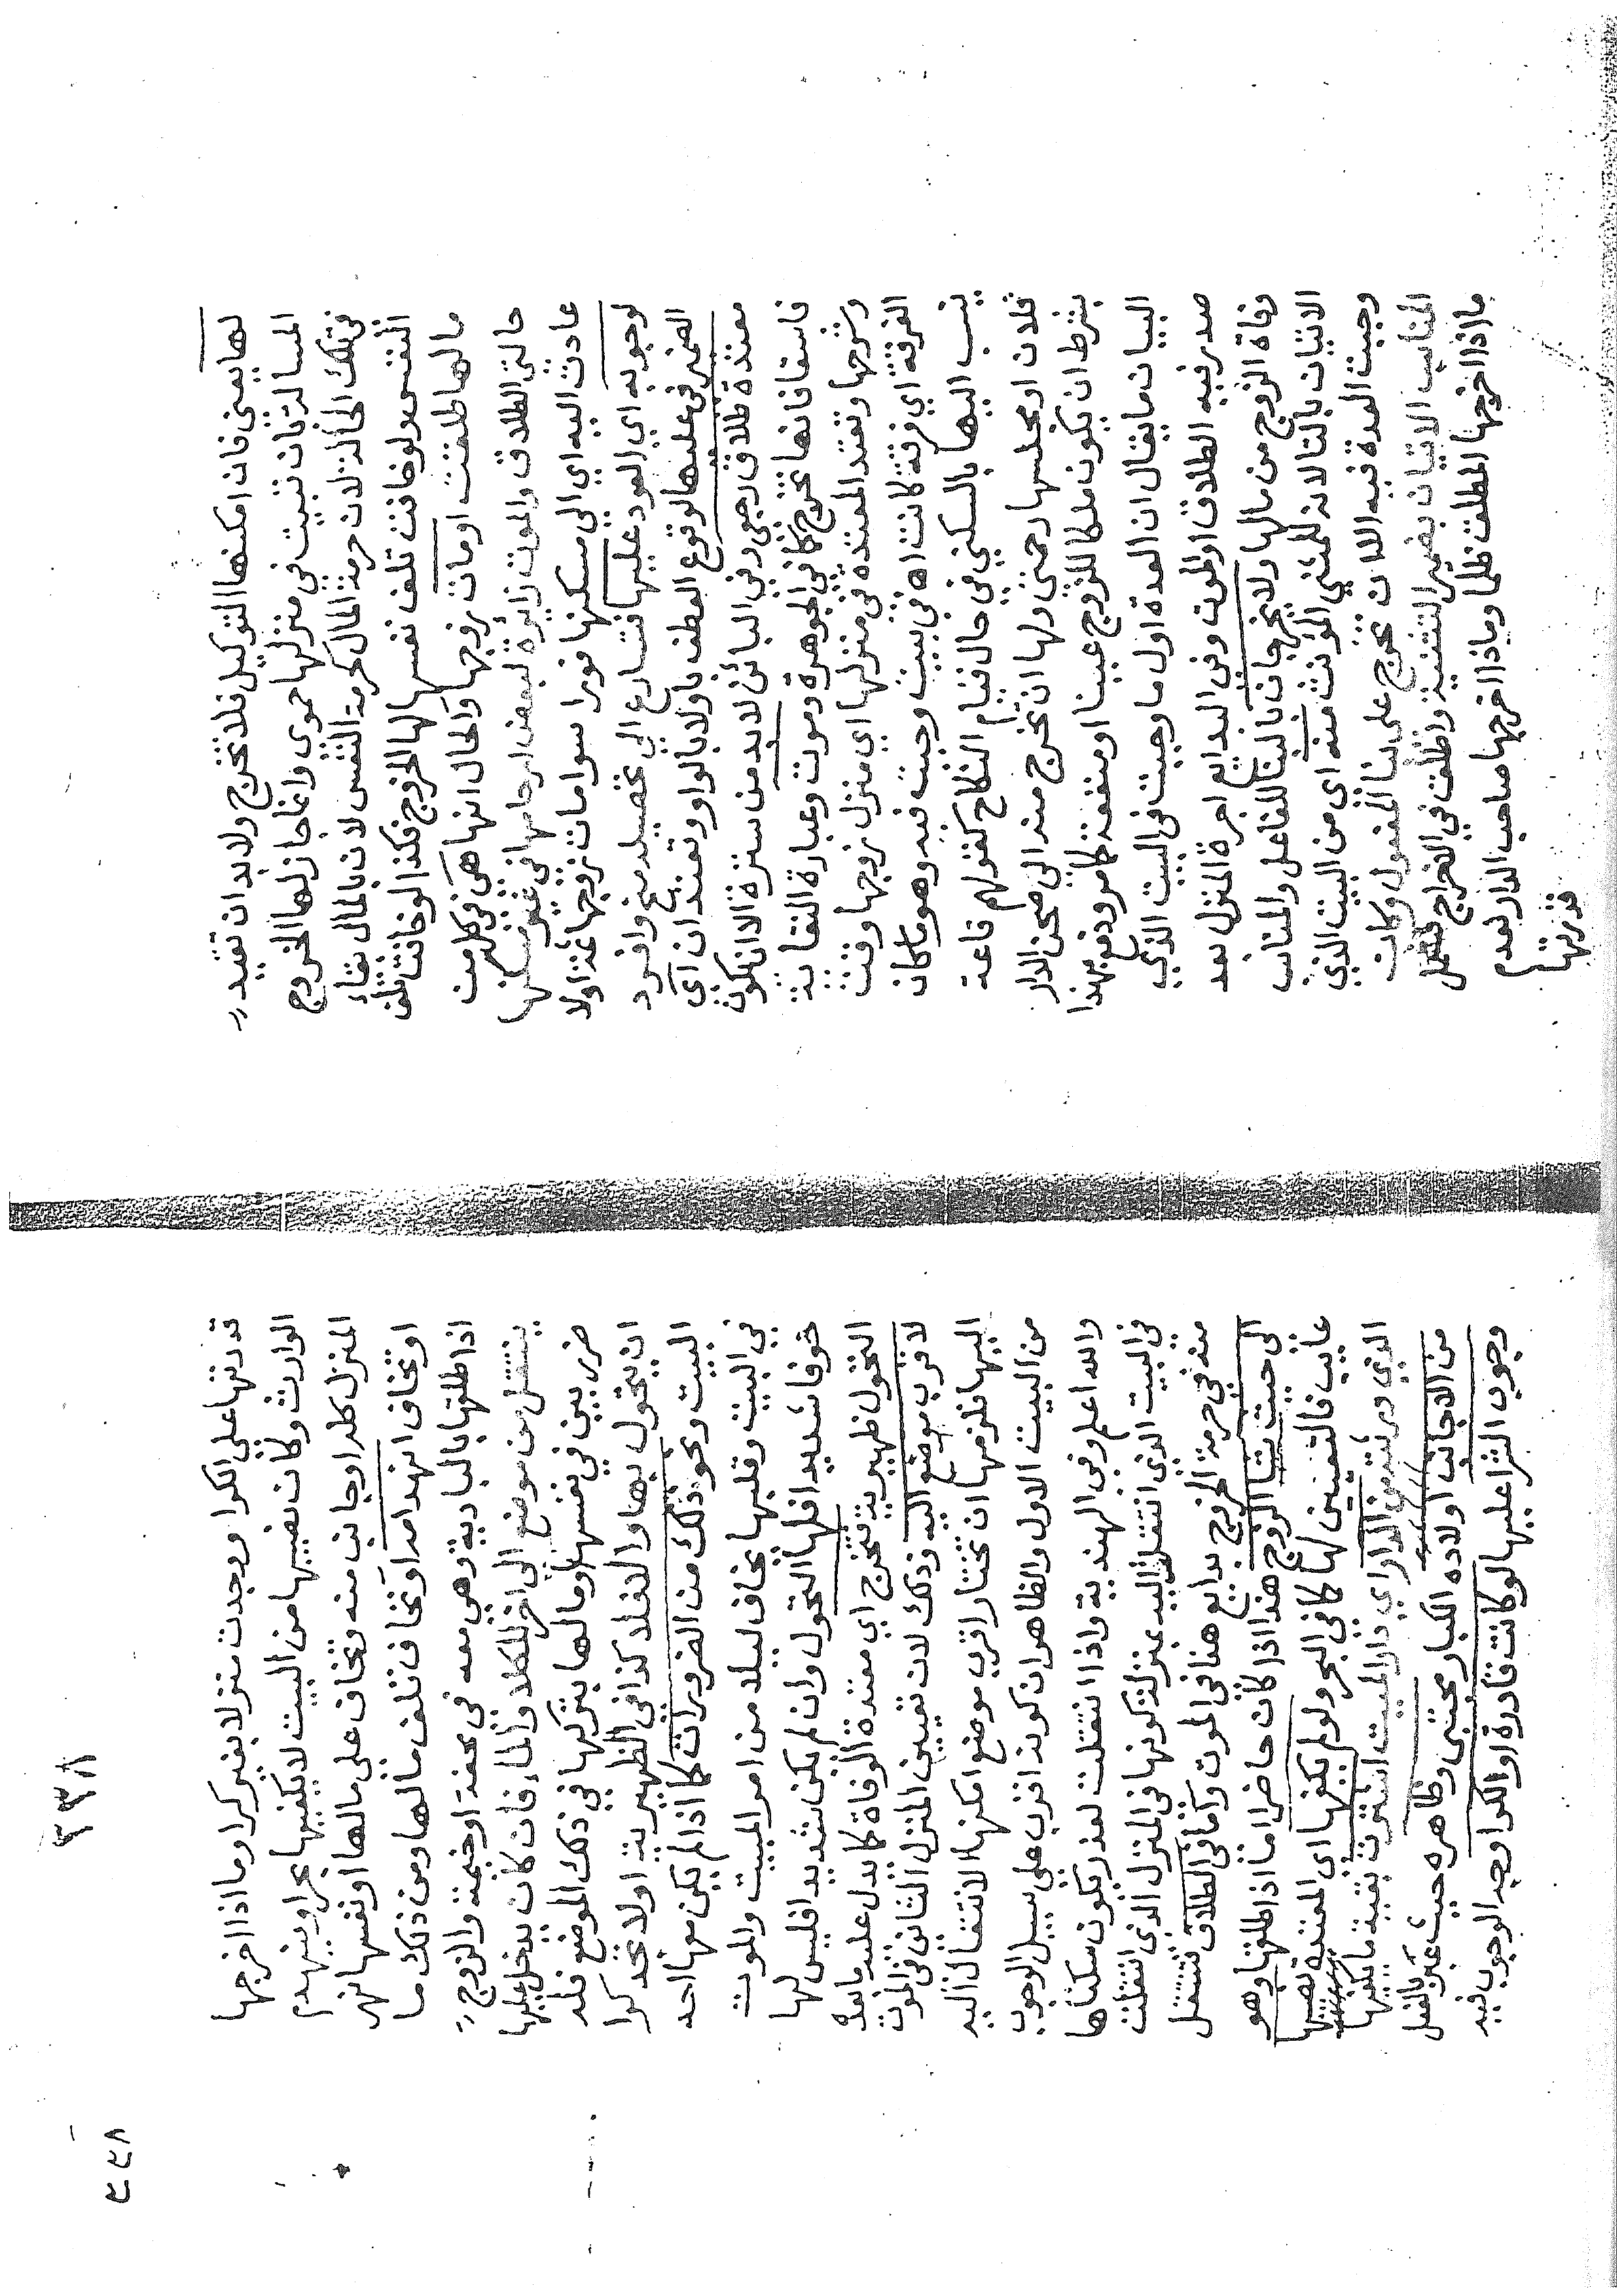 لها يعني فان امكنها التوكيل فلا تخرج ولا بد ان تقيد
المسالة بان تبيت في منزلها حموى وانما جاز لها الخروج
في تلك الحالة لان حرمة المال كحرمة النفس لان بالمال بقاء
النفس ولو خافت تلف نفسها لها الخروج فكذا لو خافت تلف
مالها طلقت او مات زوجها والحال انها هي في كل من
حالتي الطلاق والموت زايرة لبعض ارحامها في غير مسكنها
عادت اليه اي الى مسكنها فورا سوا مات زوجها عنها اولا
لوجوبه اي العود عليها فتسارع الى تحصيله منح وافرد
الضمير في عليها لوقوع العطف باو لا بالواو وتعتدان اي
معتدة طلاق رجعي وفي البائن لا بد من سترة الا ان يكون
فاسقا فانها تخرج كما في الجوهرة وموت وعبارة النقاية
وشرحها وتعتد المعتدة في منزلها اي منزل زوجها وقت
الفرقة اي فرقة كانت اه في بيت وجبت فيه وهو ما كان
ينسب اليها بالسكني في حال قيام النكاح كقولهم قاعة
فلان او مجلسها رحمتى ولها ان تخرج منه الى صحن الدار
بشرط ان يكون ملكا للزوج عينا او منفعة كما مر ودفع بهذا
البيان ما يقال ان العدة اول ما وجبت في البيت الذي
صدر فيه الطلاق او الموت وفي البدايع اجرة المنزل بعد
وفاة الزوج من مالها ولا يخرجان بالبنا للفاعل والمناسب
الاتيان بالتا لانه للمثني المؤنث منه اي من البيت الذي
وجبت العدة فيه الا ان تخرج على بنا المفعول وكان
المناسب الاتيان بضمير التثنية واطلق في اخراج فشمل
ما اذا اخرجها المطلق ظلما وما اذا اخرجها صاحب الدار لعدم
قدرتها
٢٣٨
٢٣٨
قدرتها على الكرا ووجدت منزلا بغير كرا وما اذا اخرجها
الوارث وكان نصيبها من البيت لا يكفيها بحر او ينهدم
المنزل كله او جانب منه وتخاف على مالها او نفسها نهر
او تخاف انهدامه او تخاف تلف مالها ومن ذلك ما
اذا طلقها بالبادية وهي معه في محفة او خيمة والزوج
ينتقل من موضع الى اخر للكلا والماء فان كان يدخل عليها
ضرر بين في نفسها او مالها بتركها في ذلك الموضع فله
ان يتحول بها والا فلا كذا في الظهيرية او لا تجد كرا
البيت ونحو ذلك من الضرورات كما اذا لم يكن معها احد
في البيت وقلبها يخاف ليلا من امر المبيت والموت
خوفا شديدا فلها التحول وان لم يكن شديدا فليس لها
التحول ظهيرية فتخرج اي معتدة الوفاة كما يدل عليه ما بعده
لاقرب موضع اليه وذلك لان تعيين المنزل الثاني في الموت
اليها فلزمها ان تختار اقرب موضع امكنها الانتقال اليه
من البيت الاول والظاهر ان كونه اقرب على سبيل الوجوب
والله اعلم وفي الهندية واذا انتقلت لعذر يكون سكناها
في البيت الذي انتقلت اليه بمنزلة كونها في المنزل الذي انتقلت
منه في حرمة الخروج بدايع هنا في الموت واما في الطلاق فتنتقل
الى حيث شا الزوج هذا اذا كان حاضرا اما اذا طلقها وهو
غايب فالتعيين لها كما في البحر ولو لم يكفها اي المعتدة نصيبها
الذي ورثته من الدار اي دار الميت اشترت بقية ما يكفيها
من الاجانب او اولاده الكبار مجتبى وظاهره حيث عبر بالفعل
وجوب الشرا عليها لو كانت قادرة او الكرا وجه الوجوب فيه